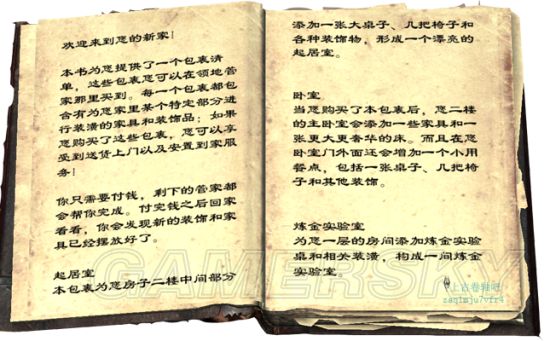 欢迎来到您的新家！
本书为您提供了一个包裹清
单，这些包裹您可以在领地管
家那里买到。每一个包裹都包
含有为您家里某个特定部分进
行装潢的家具和装饰品；如果
您购买了这些包裹，您可以享
受到送货上门以及安置到家服
务！
你只需要付钱，剩下的管家都
会帮你完成。付完钱之后回家
看看，你会发现新的装饰和家
具已经摆放好了。
起居室
本包裹为您房子二楼中间部分
添加一张大桌子、几把椅子和
各种装饰物，形成一个漂亮的
起居室。
卧室
当您购买了本包裹后，您二楼
的主卧室会添加一些家具和一
张更大更奢华的床。而且在您
卧室门外面还会增加一个小用
餐点，包括一张桌子、几把椅
子和其他装饰。
炼金实验室
为您一层的房间添加炼金实验
桌和相关装潢，构成一间炼金
实验室。
GAMERSKY
上古卷轴吧
zaq1mju7vfr4